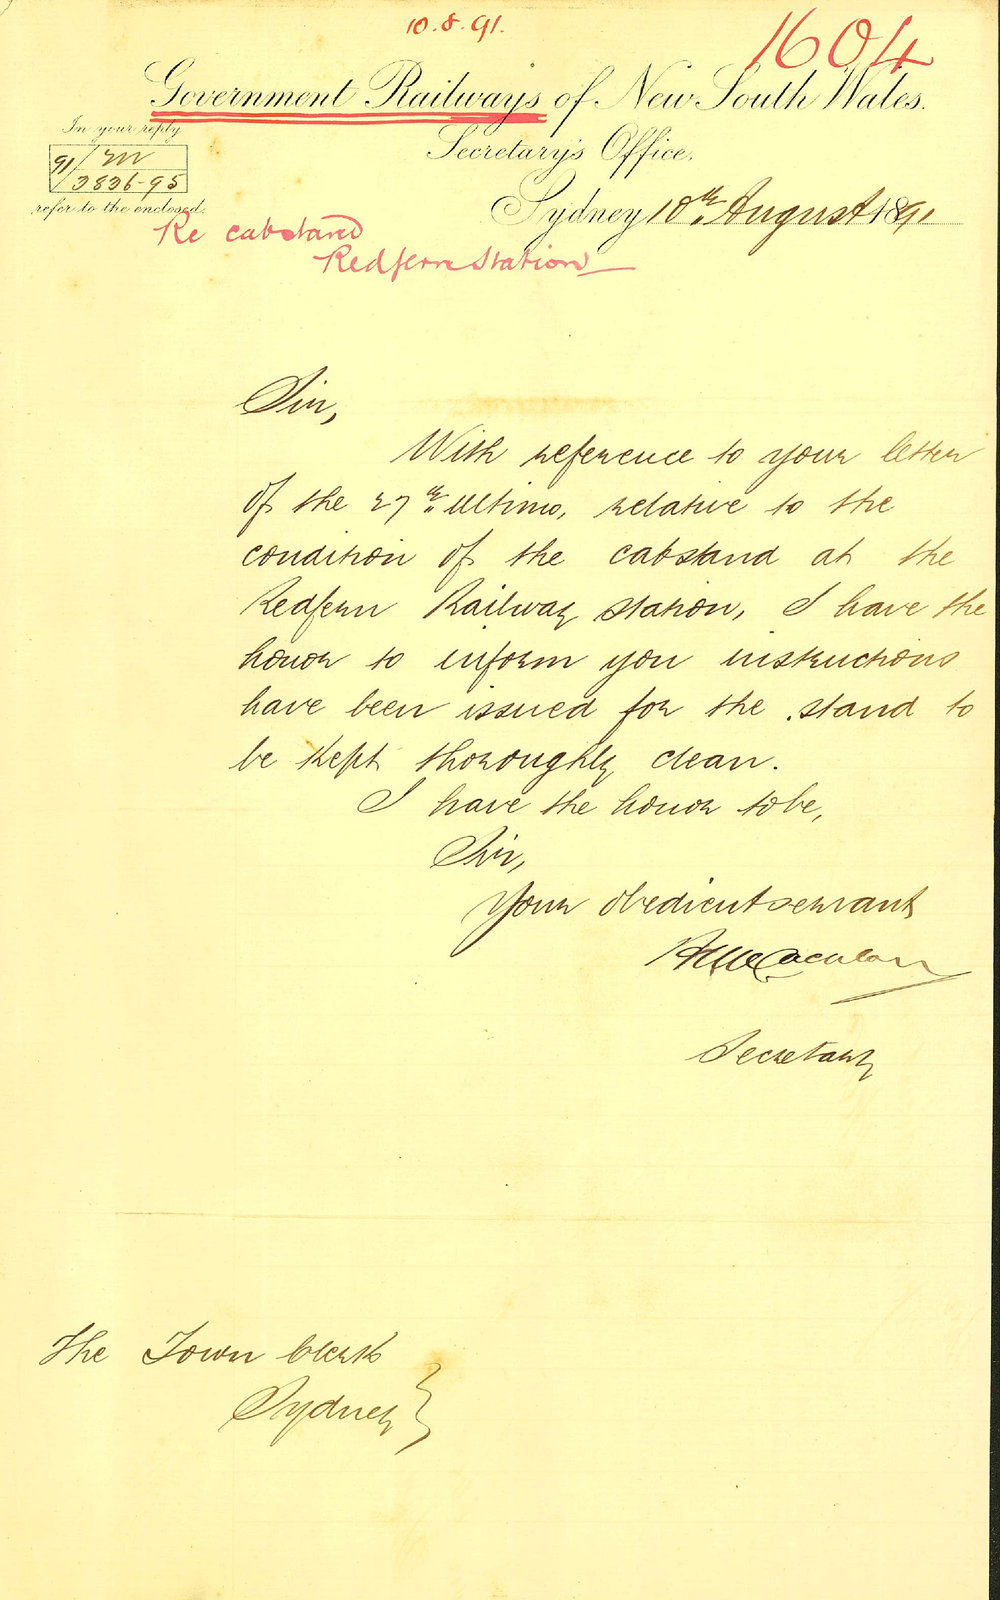 10.8.91.
1604
Government Railways of New South Wales.
Secretary's Office,
In your reply
91/M
3836-95
refer to the enclosed.
Sydney 10th August 1891
Re cabstand
Redfern Station
Sir,
With reference to your letter
of the 27th ultimo, relative to the
condition of the cabstand at the
Redfern Railway station, I have the
honor to inform you instructions
have been issued for the stand to
be kept thoroughly clean.
I have the honor to be,
Sir,
Your obedient servant
Secretary
The Town Clerk
Sydney